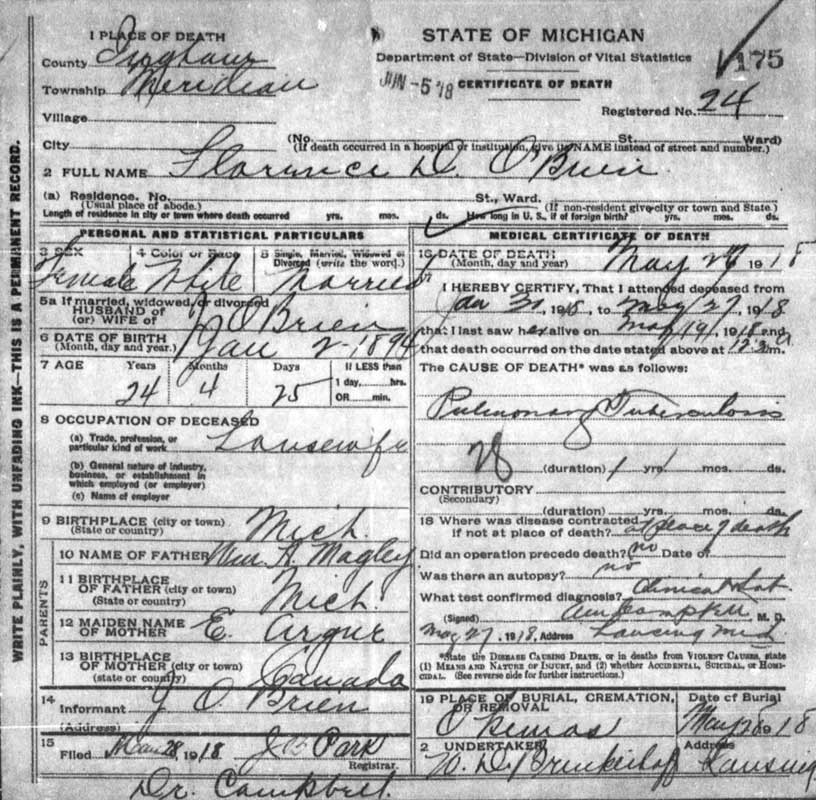 1 PLACE OF DEATH
County Ingham
Township Meridian
Village
City
STATE OF MICHIGAN
Department of State—Division of Vital Statistics
JUN -5 '18
CERTIFICATE OF DEATH
175
Registered No. 24
(No. St. Ward)
(If death occurred in a hospital or institution, give its NAME instead of street and number.)
2 FULL NAME Florence D. O'Brien
(a) Residence. No. St., Ward.
(Usual place of abode.) (If non-resident give city or town and State.)
Length of residence in city or town where death occurred yrs. mos. ds. How long in U. S., if of foreign birth? yrs. mos. ds.
PERSONAL AND STATISTICAL PARTICULARS
3 SEX 4 Color or Race 5 Single, Married, Widowed or Divorced (write the word.)
Female White Married
5a If married, widowed, or divorced
HUSBAND of
(or) WIFE of J. O'Brien
6 DATE OF BIRTH
(Month, day and year.) Jan 2-1894
7 AGE Years Months Days If LESS than
1 day, hrs.
OR min.
24 4 25
8 OCCUPATION OF DECEASED
(a) Trade, profession, or
particular kind of work Housewife
(b) General nature of industry,
business, or establishment in
which employed (or employer)
(c) Name of employer
9 BIRTHPLACE (city or town)
(State or country) Mich.
PARENTS
10 NAME OF FATHER Wm. A. Magley
11 BIRTHPLACE
OF FATHER (city or town)
(State or country) Mich.
12 MAIDEN NAME
OF MOTHER E.
13 BIRTHPLACE
OF MOTHER (city or town)
(state or country) Canada
14
Informant J O'Brien
(Address)
15
Filed May 28, 1918 Park
Registrar.
Dr. Campbell
MEDICAL CERTIFICATE OF DEATH
16 DATE OF DEATH
(Month, day and year) May 27 1918
17
I HEREBY CERTIFY, That I attended deceased from
Jan 31, 1918, to May 27, 1918
that I last saw her alive on May 19, 1918 and
that death occurred on the date stated above at m.
The CAUSE OF DEATH* was as follows:
Pulmonary Tuberculosis
28
(duration) 1 yrs. mos. ds.
CONTRIBUTORY
(Secondary)
(duration) yrs. mos. ds.
18 Where was disease contracted
if not at place of death? at place of death
Did an operation precede death? no Date of
Was there an autopsy? no
What test confirmed diagnosis? Clinical & Lab.
(Signed) Campbell M. D.
May 27, 1918, Address Lansing Mich
*State the DISEASE CAUSING DEATH, or in deaths from VIOLENT CAUSES, state
(1) MEANS AND NATURE OF INJURY, and (2) whether ACCIDENTAL, SUICIDAL, or HOMI-
CIDAL. (See reverse side for further instructions.)
19 PLACE OF BURIAL, CREMATION, OR REMOVAL Date of Burial
Okemos May 28 1918
2 UNDERTAKER Address
Lansing
WRITE PLAINLY, WITH UNFADING INK—THIS IS A PERMANENT RECORD.